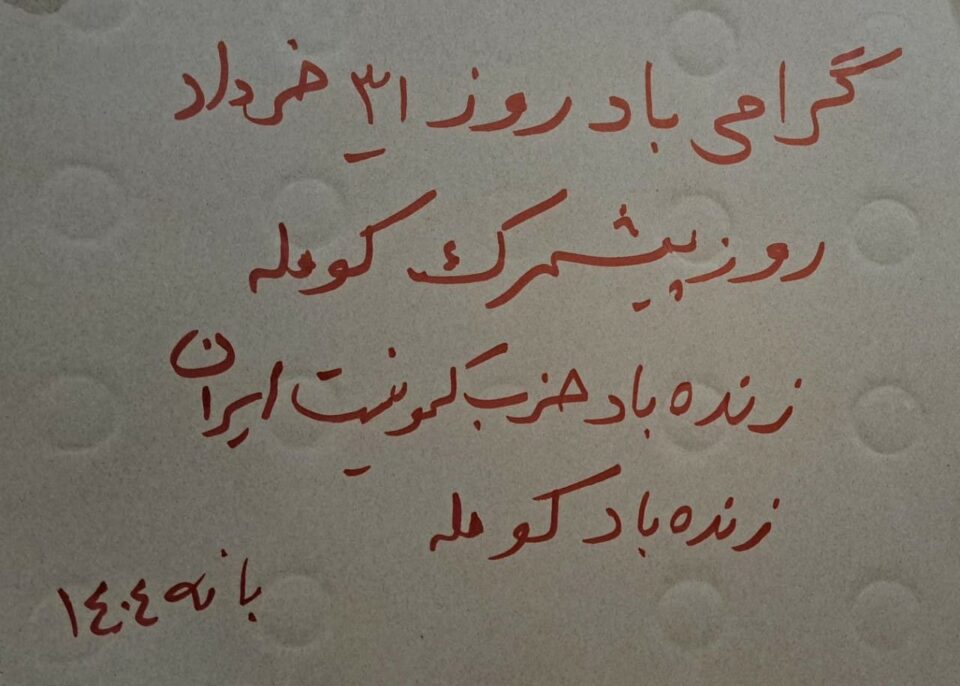 گرامی باد روز ۳۱ خرداد
روز پیشمرگ کومله
زنده باد حزب کمونیست ایران
زنده باد کومله
بانه ۱٤۰٤